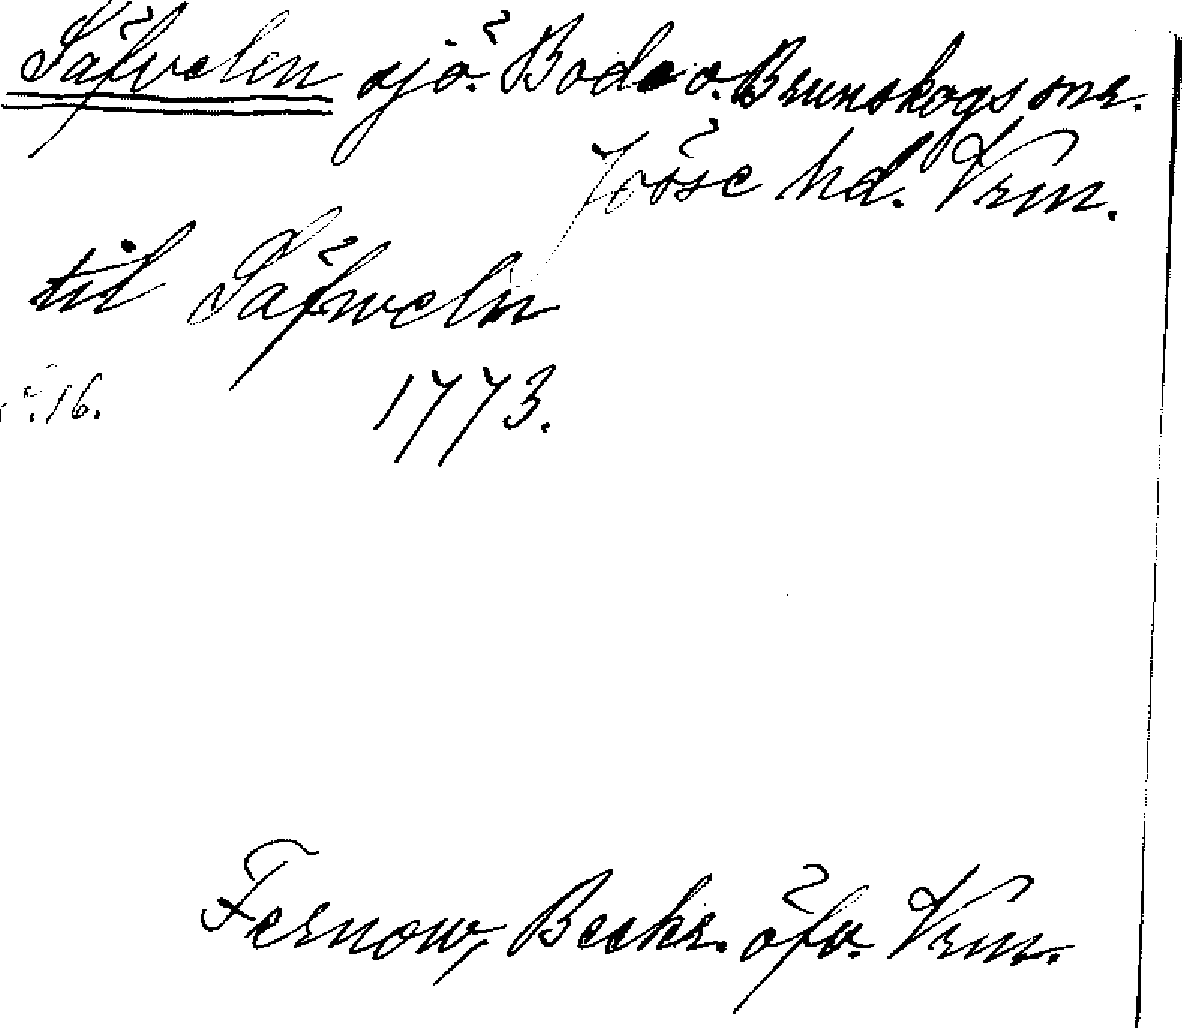 Säfvelen sjö. Boda o. Brunskogs snr.
Jösse hd. Vrm.
til Säfweln
s. 16. 1773.
Fernow, Beskr. öfv. Vrm.